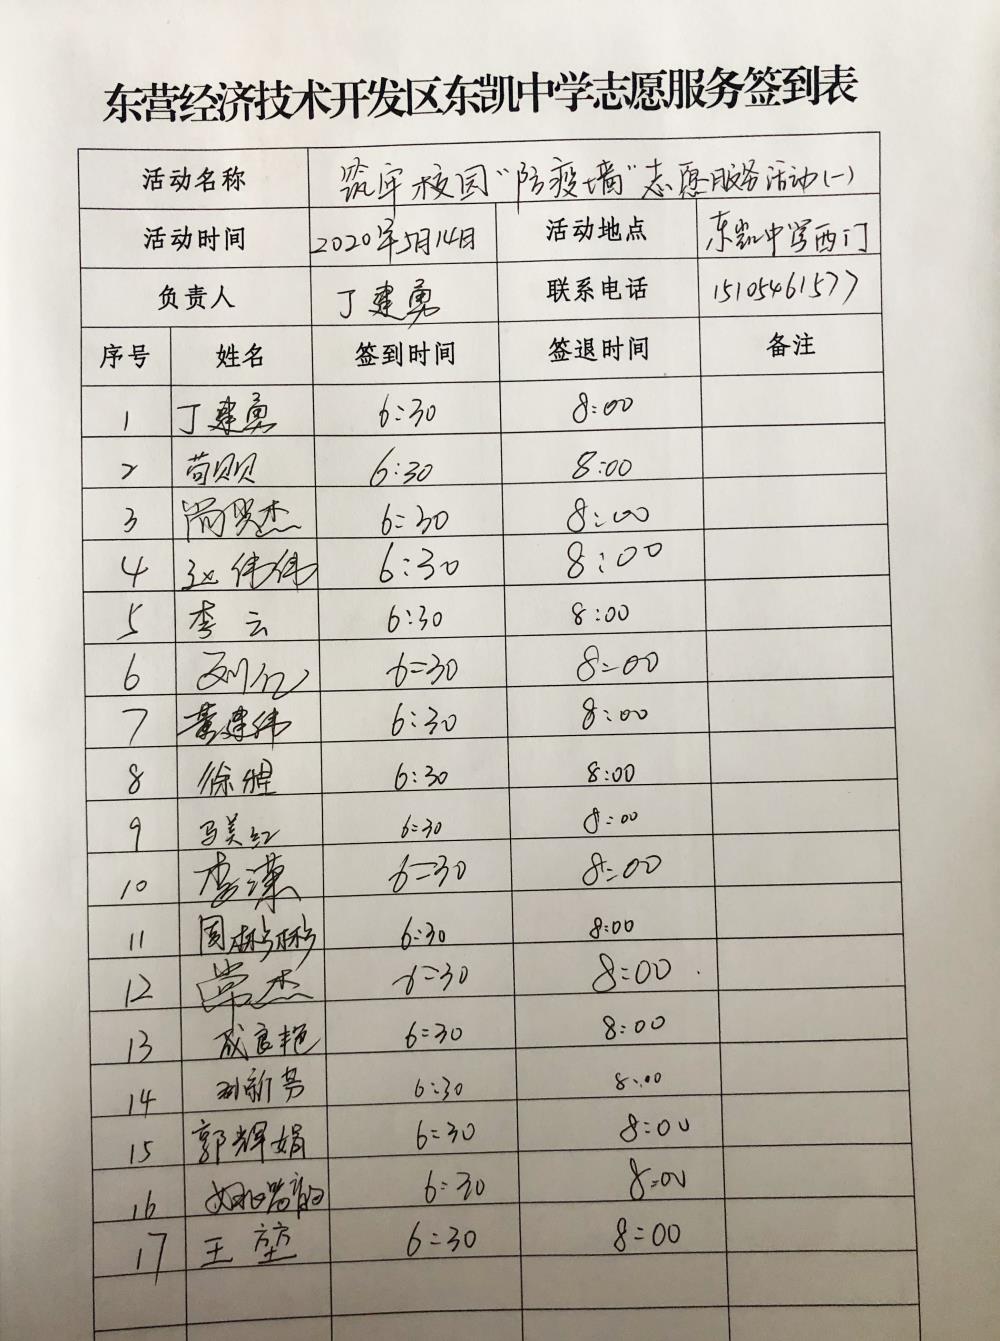 东营经济技术开发区东凯中学志愿服务签到表
活动名称 筑牢校园“防疫墙”志愿服务活动(一)
活动时间 2020年5月14日 活动地点 东凯中学西门
负责人 丁建勇 联系电话 15105461577
序号 姓名 签到时间 签退时间 备注
1 丁建勇 6:30 8:00
2 苟贝贝 6:30 8:00
3 尚贤杰 6:30 8:00
4 赵伟伟 6:30 8:00
5 李云 6:30 8:00
6 刘亿 6:30 8:00
7 黄建伟 6:30 8:00
8 徐 6:30 8:00
9 马美红 6:30 8:00
10 李潇 6:30 8:00
11 周 6:30 8:00
12 常杰 6:30 8:00
13 成良艳 6:30 8:00
14 新 6:30 8:00
15 郭辉娟 6:30 8:00
16 姚 6:30 8:00
17 王堃 6:30 8:00